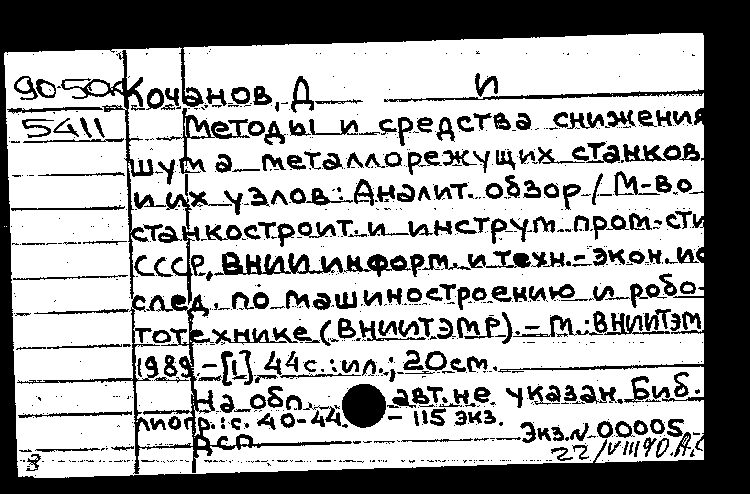 90-50к Кочанов, Д И
5411 Методы и средства снижения
шума металлорежущих станков
и их узлов: Аналит. обзор / М-во
станкостроит. и инструм. пром-сти
СССР, ВНИИ информ. и техн.-экон. ис
след. по машиностроению и робо-
тотехнике (ВНИИТЭМР). - М.: ВНИИТЭМ
1989 - [1], 44 с.: ил.; 20 см.
На обл. авт. не указан. Биб.
лиогр.: с. 40-44. - 115 экз.
ДСП. Экз. N 00005.
22/VIII 90.